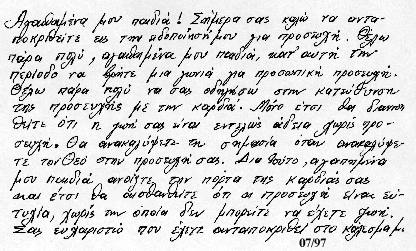 Αγαπημένα μου παιδιά! Σήμερα σας καλώ να αντα-
ποκριθείτε εις την ειδοποίησή μου για προσευχή. Θέλω
πάρα πολύ, αγαπημένα μου παιδιά, κατ' αυτή την
περίοδο να βρήτε μια γωνιά για προσωπική προσευχή.
Θέλω πάρα πολύ να σας οδηγήσω στην κατεύθυνση
της προσευχής με την καρδιά. Μόνο έτσι θα διαισθαν-
θείτε ότι η ζωή σας είναι εντελώς άδεια χωρίς προ-
σευχή. Θα ανακαλύψετε τη σημασία όταν ανακαλύψε-
τε τον Θεό στην προσευχή σας. Δια τούτο, αγαπημένα
μου παιδιά ανοίξτε την πόρτα της καρδιάς σας
και έτσι θα αισθανθείτε ότι η προσευχή είναι ευ-
τυχία, χωρίς την οποία δεν μπορείτε να έχετε ζωή.
Σας ευχαριστώ που έχετε ανταποκριθεί στο κάλεσμά μ.
07/97